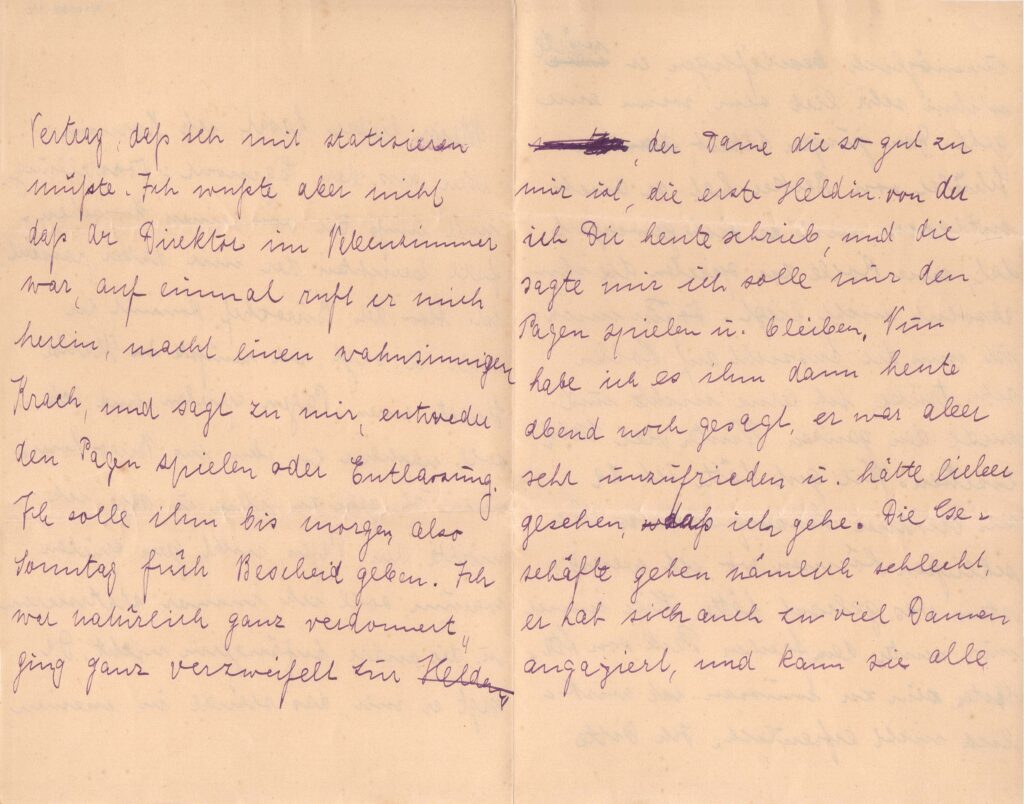 Vertrag, daß ich mit statisieren
müßte. Ich wußte aber nicht
daß der Direktor im Nebenzimmer
war, auf einmal ruft er mich
herein, macht einen wahnsinnigen
Krach, und sagt zu mir, entweder
den Pagen spielen oder Entlassung.
Ich solle ihm bis morgen also
Sonntag früh Bescheid geben. Ich
war natürlich ganz verdonnert,
ging ganz verzweifelt zur Helden
der Dame die so gut zu
mir ist, die erste Heldin von der
ich Dir heute schrieb, und die
sagte mir ich solle nur den
Pagen spielen u. bleiben. Nun
habe ich es ihm dann heute
abend noch gesagt, er war aber
sehr unzufrieden u. hätte lieber
gesehen, daß ich gehe. Die Ge-
schäfte gehen nämlich schlecht,
er hat sich auch zu viel Damen
angagiert, und kann sie alle